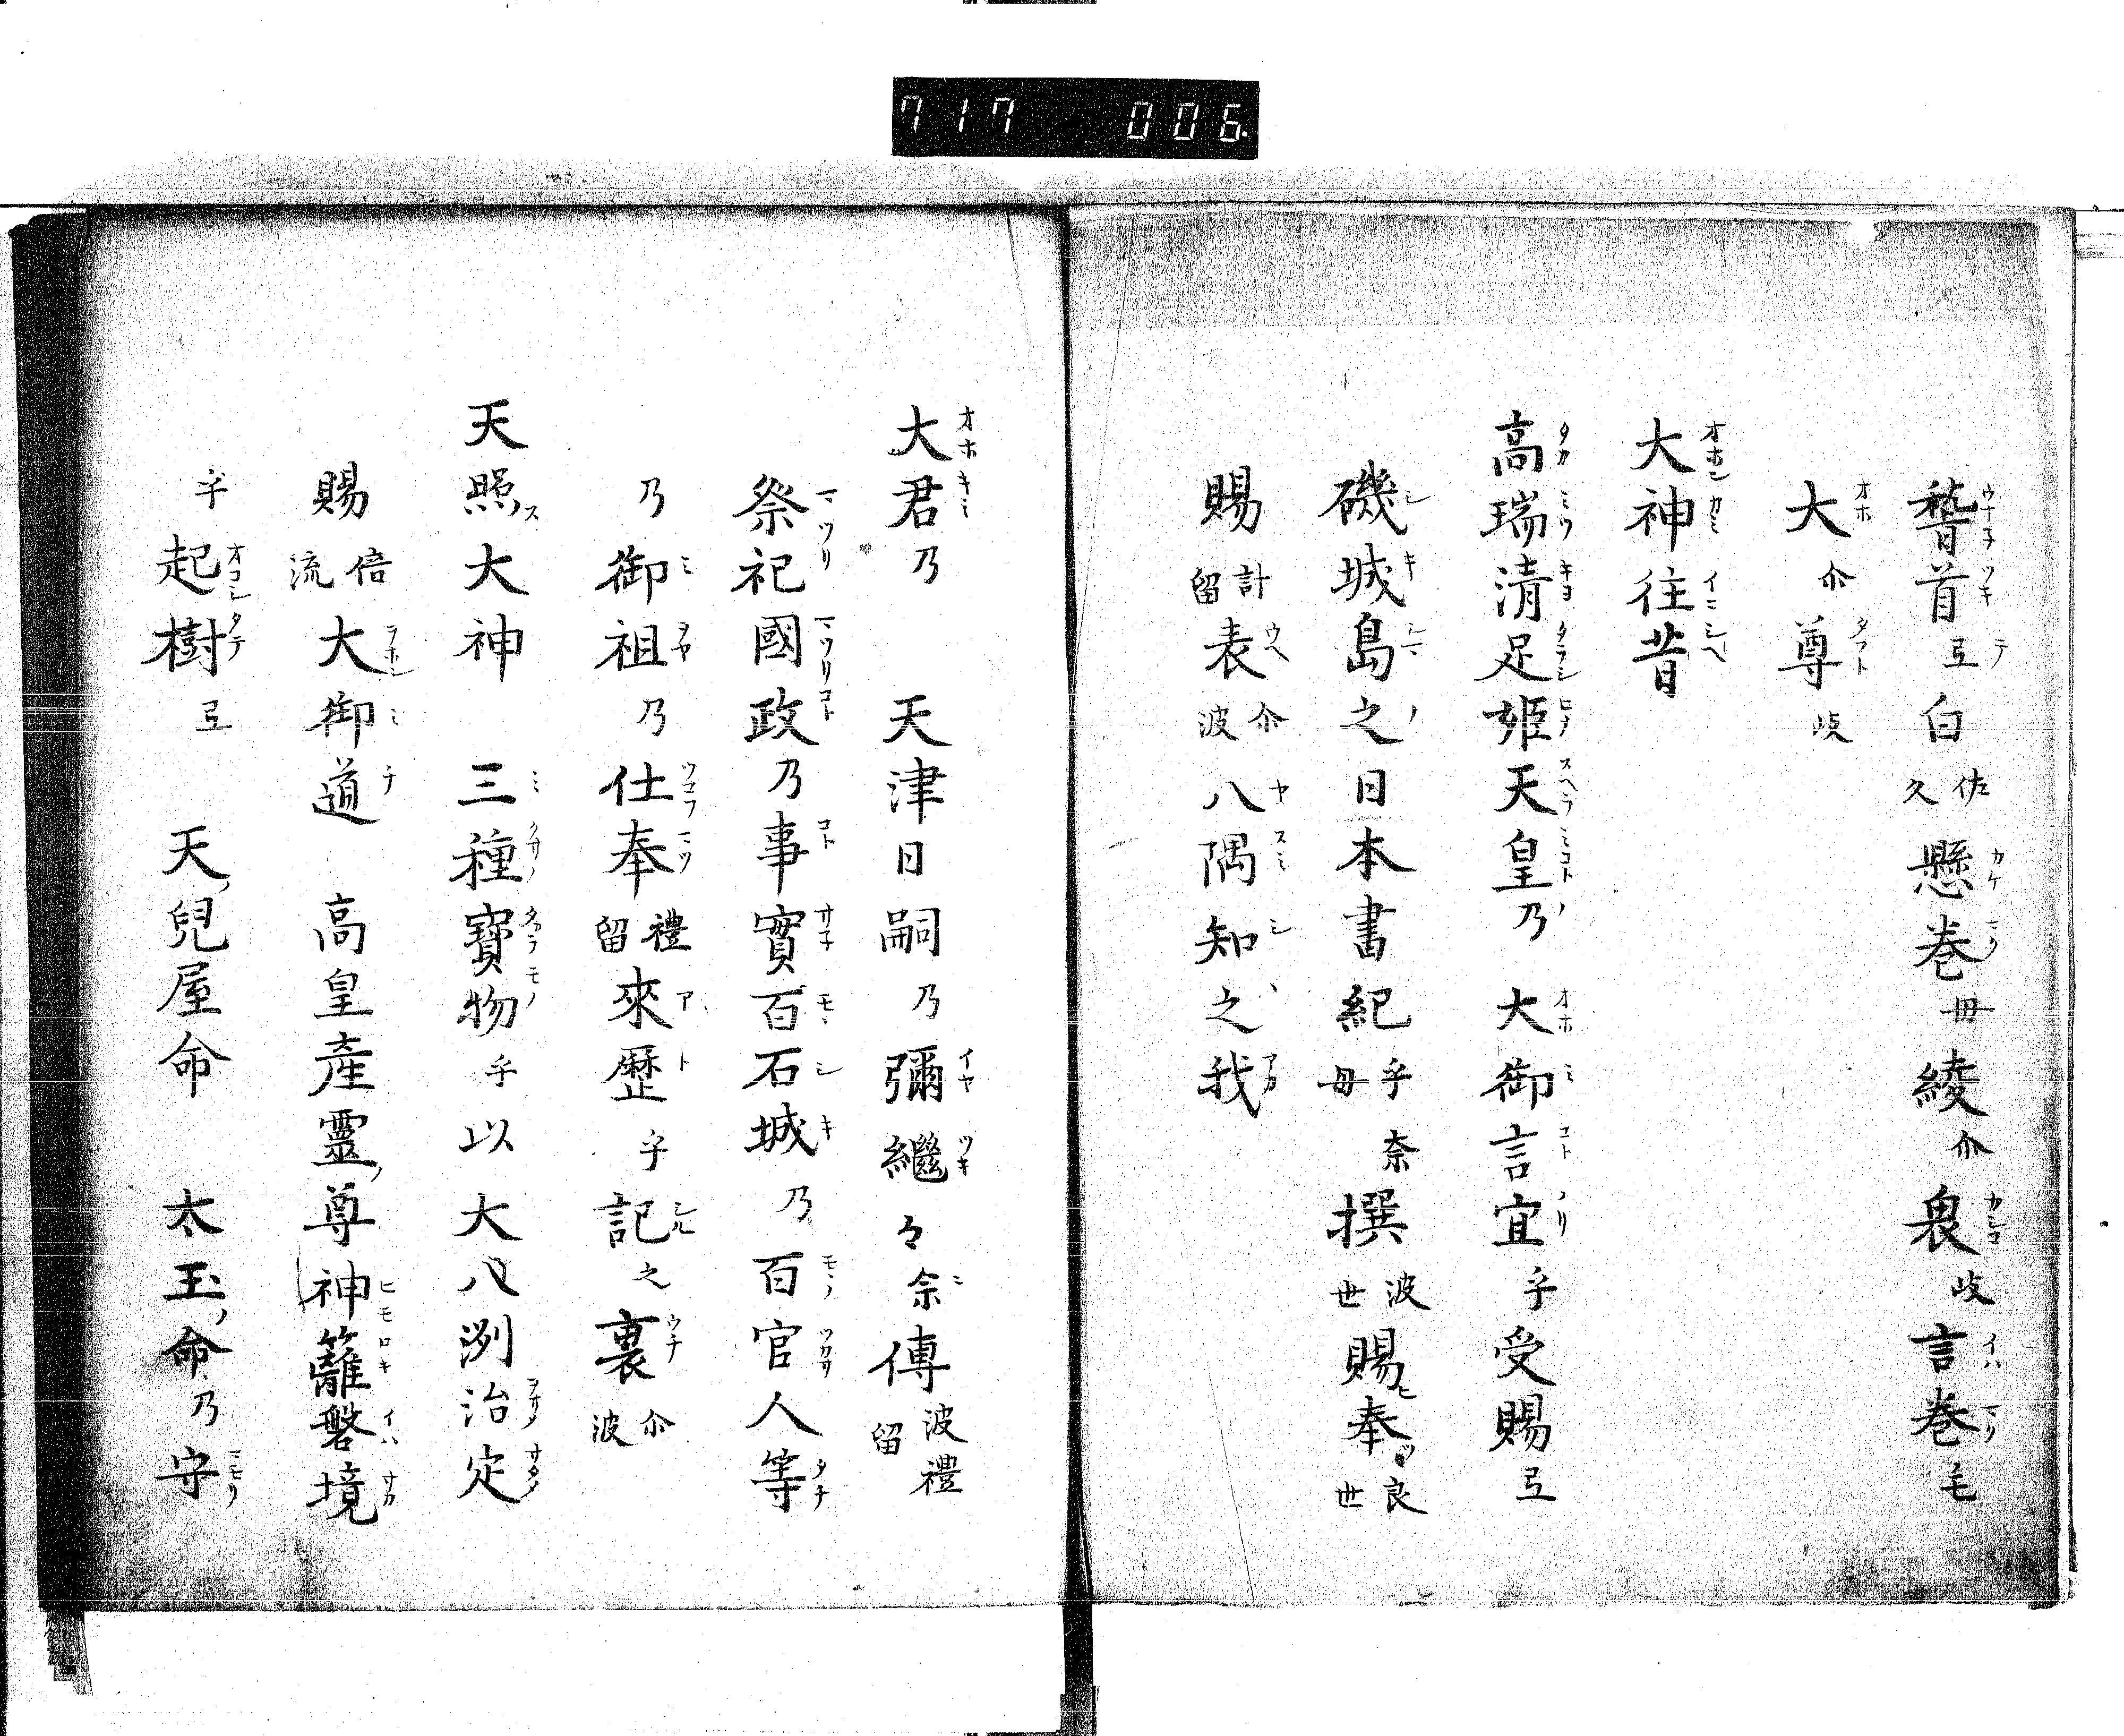 717 006
稽首弖白佐久懸巻毋綾尒畏岐言巻毛
大尒尊岐
大神往昔
高瑞清足姫天皇乃大御言宜乎受賜弖
磯城島之日本書紀乎毋奈撰波世賜ヒ奉ツ良世
賜計留表尒波八隅知之我
大君乃 天津日嗣乃彌繼々尒傳波禮留
祭祀國政乃事實百石城乃百官人等
乃御祖乃仕奉禮留來歴乎記之裏尒波
天照ス大神 三種寶物乎以大八洲治定
賜倍流大御道 高皇產靈ノ尊神籬磐境
乎起樹弖 天ノ兒屋命 太玉ノ命乃守